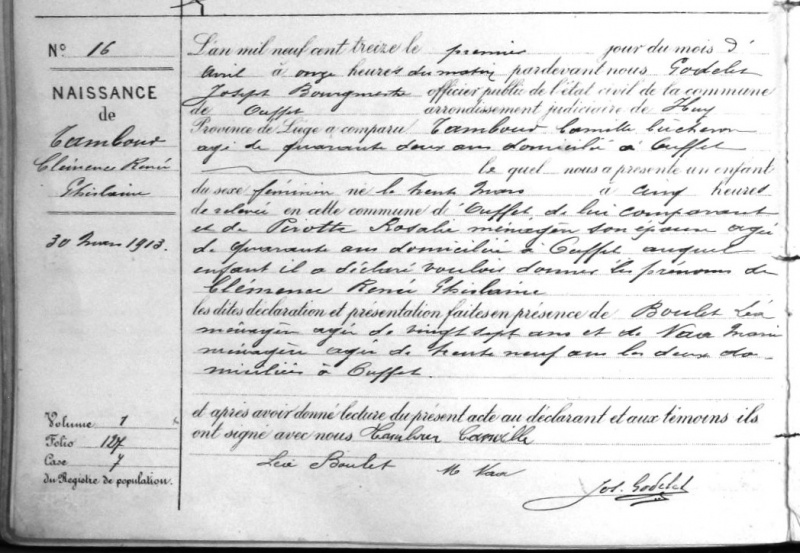 N° 16
NAISSANCE
de
Tambour
Clémence Renée
Ghislaine
30 Mars 1913.
Volume 1
Folio 127
Case 7
du Registre de population.
L'an mil neuf cent treize le premier jour du mois d'
avril à onze heures du matin pardevant nous Godelet
Joseph Bourgmestre officier public de l'état civil de la commune
de Ouffet arrondissement judiciaire de Huy
Province de Liège a comparu Tambour Camille bûcheron
agé de quarante deux ans domicilié à Ouffet
le quel nous a présenté un enfant
du sexe féminin né le trente Mars à cinq heures
de relevée en cette commune d'Ouffet, de lui comparant
et de Pirotte Rosalie ménagère son épouse agée
de quarante ans domiciliée à Ouffet auquel
enfant il a déclaré vouloir donner les prénoms de
Clémence Renée Ghislaine
les dites déclaration et présentation faites en présence de Boulet Léa
ménagère agée de vingt sept ans et de Vaux Marie
ménagère agée de trente neuf ans les deux do-
miciliées à Ouffet.
et après avoir donné lecture du présent acte au déclarant et aux témoins ils
ont signé avec nous Tambour Camille
Léa Boulet M Vaux
Jos. Godelet